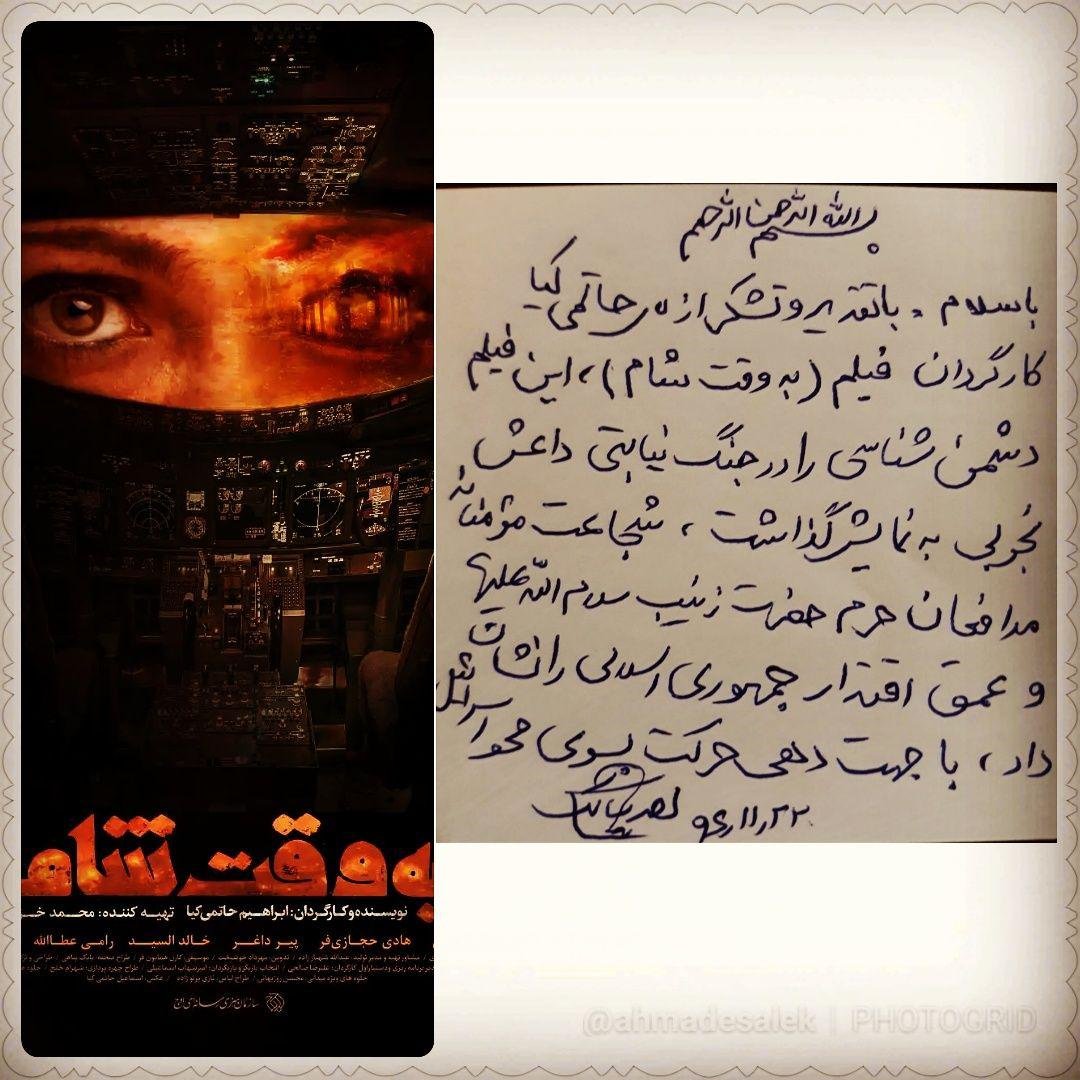 بسم الله الرحمن الرحیم
با سلام . با تقدیر و تشکر از حاتمی کیا
کارگردان فیلم (به وقت شام)، این فیلم
دشمن شناسی را در جنگ نیابتی داعش
بخوبی به نمایش گذاشت ، شجاعت مؤمنانه
مدافعان حرم حضرت زینب سلام الله علیها
و عمق اقتدار جمهوری اسلامی را نشان
داد ، با جهت دهی حرکت بسوی محو اسرائیل
احمد سالک ۹۶٫۱۱٫۲۲
به وقت شام
نویسنده و کارگردان: ابراهیم حاتمی‌کیا تهیه کننده: محمد خـ
هادی حجازی‌فر پیر داغر خالد السید رامی عطاالله
سازمان هنری رسانه‌ای اوج
@ahmadesalek | PHOTOGRID